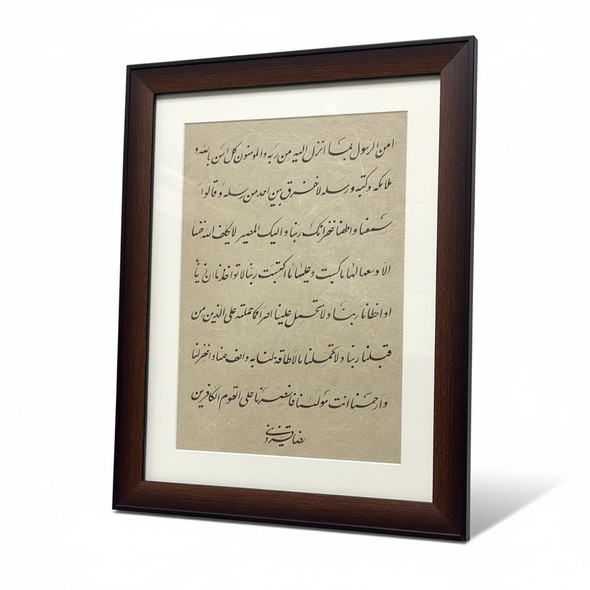 امن الرسول بما انزل الیه من ربه والمومنون کل امن بالله و
ملائکه وکتبه و رسله لا نفرق بین احد من رسله و قالوا
سمعنا واطعنا غفرانک ربنا و الیک المصیر لا یکلف الله نفسا
الا وسعها لها ما کسبت وعلیها ما اکتسبت ربنا لا تواخذنا ان نسینا
او اخطانا ربنا ولا تحمل علینا اصرا کما حملته علی الذین من
قبلنا ربنا ولا تحملنا ما لا طاقة لنا به واعف عنا واغفر لنا
وارحمنا انت مولنا فانصرنا علی القوم الکافرین